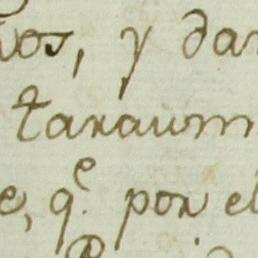 vos, y dar
taraum
e, q.e por el